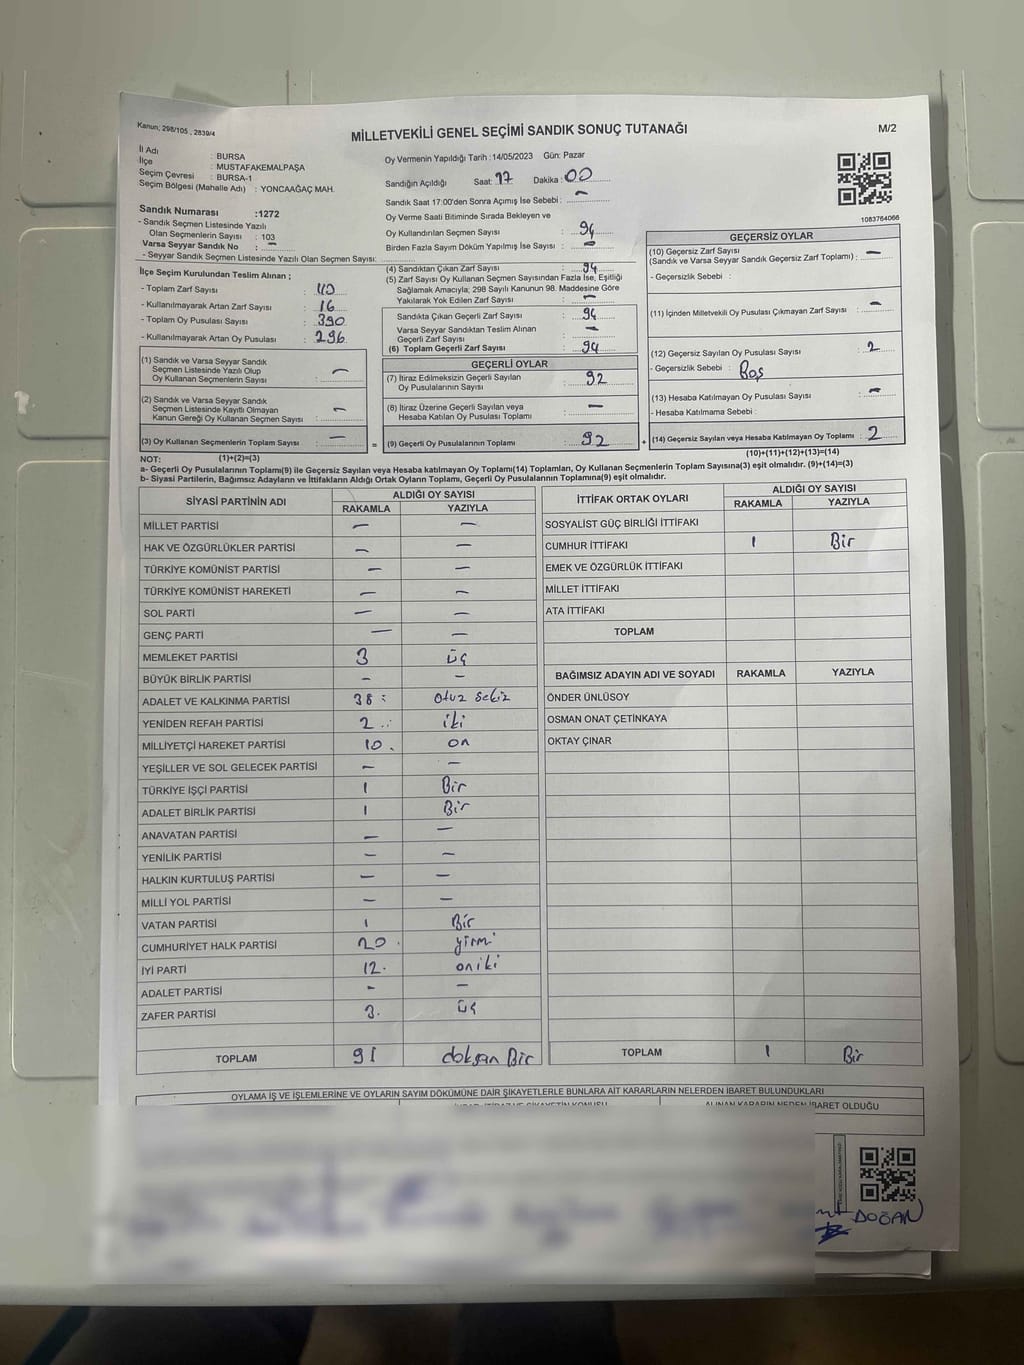 Kanun; 298/105 , 2839/4
MİLLETVEKİLİ GENEL SEÇİMİ SANDIK SONUÇ TUTANAĞI
M/2
İl Adı : BURSA
İlçe : MUSTAFAKEMALPAŞA
Seçim Çevresi : BURSA-1
Seçim Bölgesi (Mahalle Adı) : YONCAAĞAÇ MAH.
Sandık Numarası :1272
- Sandık Seçmen Listesinde Yazılı
Olan Seçmenlerin Sayısı : 103
Varsa Seyyar Sandık No : —
- Seyyar Sandık Seçmen Listesinde Yazılı Olan Seçmen Sayısı:
Oy Vermenin Yapıldığı Tarih :14/05/2023 Gün: Pazar
Sandığın Açıldığı Saat: 17 Dakika : 00
Sandık Saat 17:00'den Sonra Açımış İse Sebebi : —
Oy Verme Saati Bitiminde Sırada Bekleyen ve
Oy Kullandırılan Seçmen Sayısı : 94
Birden Fazla Sayım Döküm Yapılmış İse Sayısı : —
1083764066
İlçe Seçim Kurulundan Teslim Alınan ;
- Toplam Zarf Sayısı : 110
- Kullanılmayarak Artan Zarf Sayısı : 16
- Toplam Oy Pusulası Sayısı : 390
- Kullanılmayarak Artan Oy Pusulası : 296
(1) Sandık ve Varsa Seyyar Sandık
Seçmen Listesinde Yazılı Olup
Oy Kullanan Seçmenlerin Sayısı : —
(2) Sandık ve Varsa Seyyar Sandık
Seçmen Listesinde Kayıtlı Olmayan
Kanun Gereği Oy Kullanan Seçmen Sayısı : —
(3) Oy Kullanan Seçmenlerin Toplam Sayısı : —
(4) Sandıktan Çıkan Zarf Sayısı : 94
(5) Zarf Sayısı Oy Kullanan Seçmen Sayısından Fazla İse, Eşitliği
Sağlamak Amacıyla; 298 Sayılı Kanunun 98. Maddesine Göre
Yakılarak Yok Edilen Zarf Sayısı : —
Sandıkta Çıkan Geçerli Zarf Sayısı : 94
Varsa Seyyar Sandıktan Teslim Alınan
Geçerli Zarf Sayısı : —
(6) Toplam Geçerli Zarf Sayısı : 94
GEÇERLİ OYLAR
(7) İtiraz Edilmeksizin Geçerli Sayılan
Oy Pusulalarının Sayısı : 92
(8) İtiraz Üzerine Geçerli Sayılan veya
Hesaba Katılan Oy Pusulası Toplamı : —
= (9) Geçerli Oy Pusulalarının Toplamı : 92 +
GEÇERSİZ OYLAR
(10) Geçersiz Zarf Sayısı
(Sandık ve Varsa Seyyar Sandık Geçersiz Zarf Toplamı) : —
- Geçersizlik Sebebi :
(11) İçinden Milletvekili Oy Pusulası Çıkmayan Zarf Sayısı : —
(12) Geçersiz Sayılan Oy Pusulası Sayısı : 2
- Geçersizlik Sebebi : Boş
(13) Hesaba Katılmayan Oy Pusulası Sayısı : —
- Hesaba Katılmama Sebebi :
(14) Geçersiz Sayılan veya Hesaba Katılmayan Oy Toplamı : 2
NOT: (1)+(2)=(3)
(10)+(11)+(12)+(13)=(14)
a- Geçerli Oy Pusulalarının Toplamı(9) ile Geçersiz Sayılan veya Hesaba katılmayan Oy Toplamı(14) Toplamları, Oy Kullanan Seçmenlerin Toplam Sayısına(3) eşit olmalıdır. (9)+(14)=(3)
b- Siyasi Partilerin, Bağımsız Adayların ve İttifakların Aldığı Ortak Oyların Toplamı, Geçerli Oy Pusulalarının Toplamına(9) eşit olmalıdır.
SİYASİ PARTİNİN ADI ALDIĞI OY SAYISI
RAKAMLA YAZIYLA
MİLLET PARTİSİ — —
HAK VE ÖZGÜRLÜKLER PARTİSİ — —
TÜRKİYE KOMÜNİST PARTİSİ — —
TÜRKİYE KOMÜNİST HAREKETİ — —
SOL PARTİ — —
GENÇ PARTİ — —
MEMLEKET PARTİSİ 3 üç
BÜYÜK BİRLİK PARTİSİ — —
ADALET VE KALKINMA PARTİSİ 38 otuz sekiz
YENİDEN REFAH PARTİSİ 2 iki
MİLLİYETÇİ HAREKET PARTİSİ 10 on
YEŞİLLER VE SOL GELECEK PARTİSİ — —
TÜRKİYE İŞÇİ PARTİSİ 1 Bir
ADALET BİRLİK PARTİSİ 1 Bir
ANAVATAN PARTİSİ — —
YENİLİK PARTİSİ — —
HALKIN KURTULUŞ PARTİSİ — —
MİLLİ YOL PARTİSİ — —
VATAN PARTİSİ 1 Bir
CUMHURİYET HALK PARTİSİ 20 yirmi
İYİ PARTİ 12 oniki
ADALET PARTİSİ — —
ZAFER PARTİSİ 3 üç
TOPLAM 91 doksan Bir
İTTİFAK ORTAK OYLARI ALDIĞI OY SAYISI
RAKAMLA YAZIYLA
SOSYALİST GÜÇ BİRLİĞİ İTTİFAKI
CUMHUR İTTİFAKI 1 Bir
EMEK VE ÖZGÜRLÜK İTTİFAKI
MİLLET İTTİFAKI
ATA İTTİFAKI
TOPLAM
BAĞIMSIZ ADAYIN ADI VE SOYADI RAKAMLA YAZIYLA
ÖNDER ÜNLÜSOY
OSMAN ONAT ÇETİNKAYA
OKTAY ÇINAR
TOPLAM 1 Bir
OYLAMA İŞ VE İŞLEMLERİNE VE OYLARIN SAYIM DÖKÜMÜNE DAİR ŞİKAYETLERLE BUNLARA AİT KARARLARIN NELERDEN İBARET BULUNDUKLARI
ALINAN KARARIN NEDEN İBARET OLDUĞU
DOĞAN